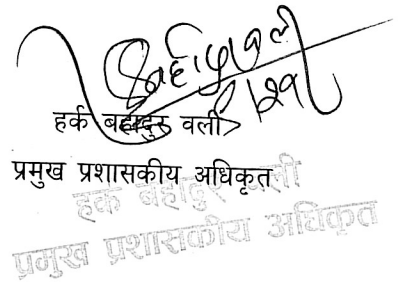 हर्क बहादुर वली
प्रमुख प्रशासकीय अधिकृत
हर्क बहादुर वली
प्रमुख प्रशासकीय अधिकृत